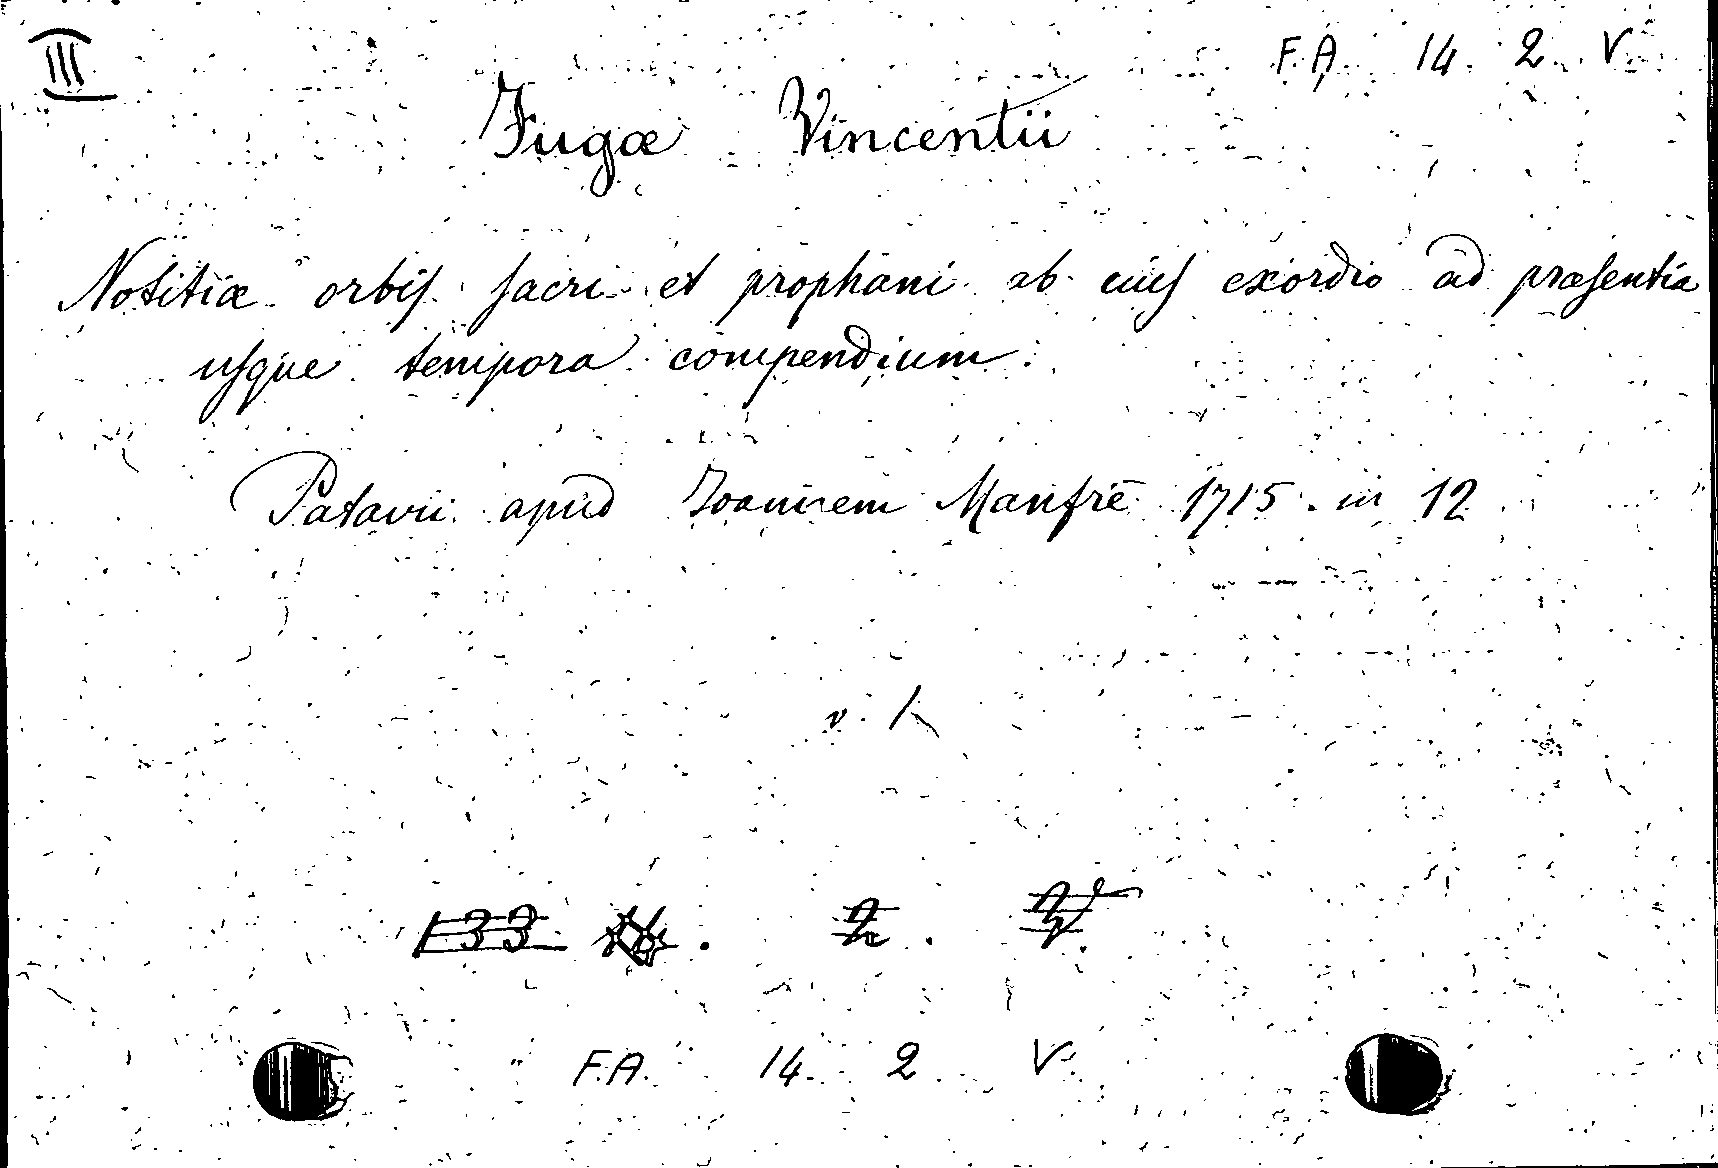 III
F.A. 14. 2. V.
Fugæ Vincentii
Notitiæ orbis sacri et prophani ab eius exordio ad præsentia
usque tempora compendium.
Patavii apud Joannem Manfrè 1715. in 12
F.A. 14. 2. V.